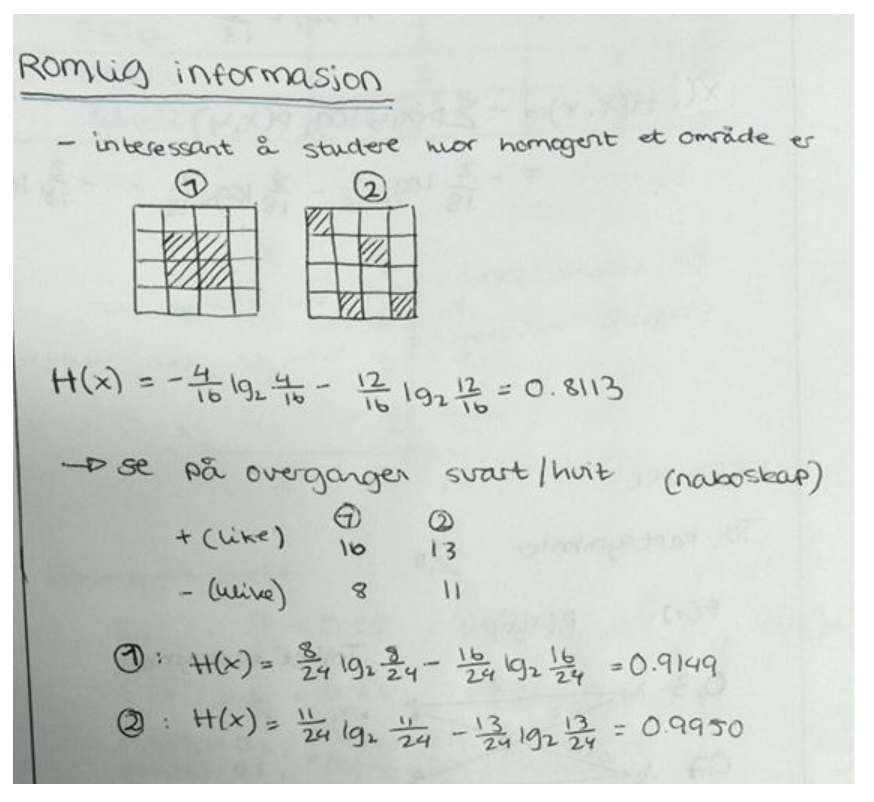 Romlig informasjon
- interessant å studere hvor homogent et område er
① ②
H(x) = - 4/16 lg₂ 4/16 - 12/16 lg₂ 12/16 = 0.8113
→ se på overganger svart/hvit (naboskap)
① ②
+ (like) 16 13
- (ulike) 8 11
①: H(x) = 8/24 lg₂ 8/24 - 16/24 lg₂ 16/24 = 0.9149
②: H(x) = 11/24 lg₂ 11/24 - 13/24 lg₂ 13/24 = 0.9950